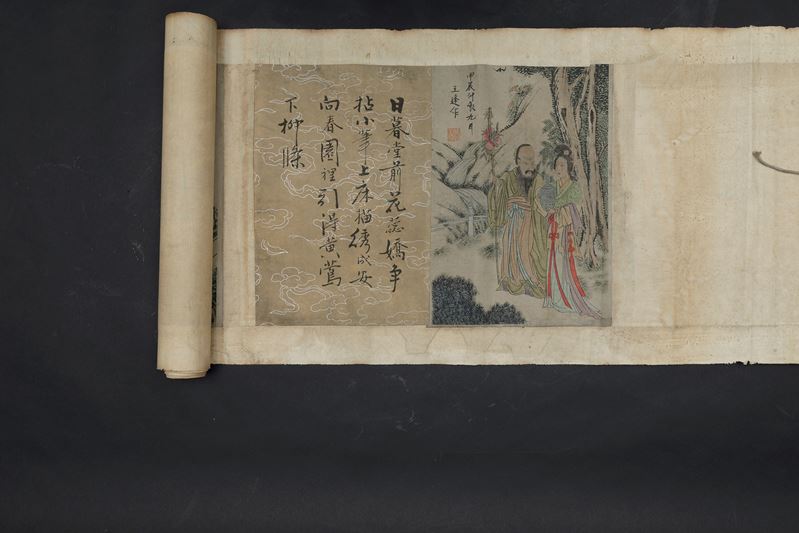 甲辰仲秋九月
王作
日暮堂前花蕊嬌争
拈小筆上床描綉成安
向春園裡引得黄鶯
下柳條